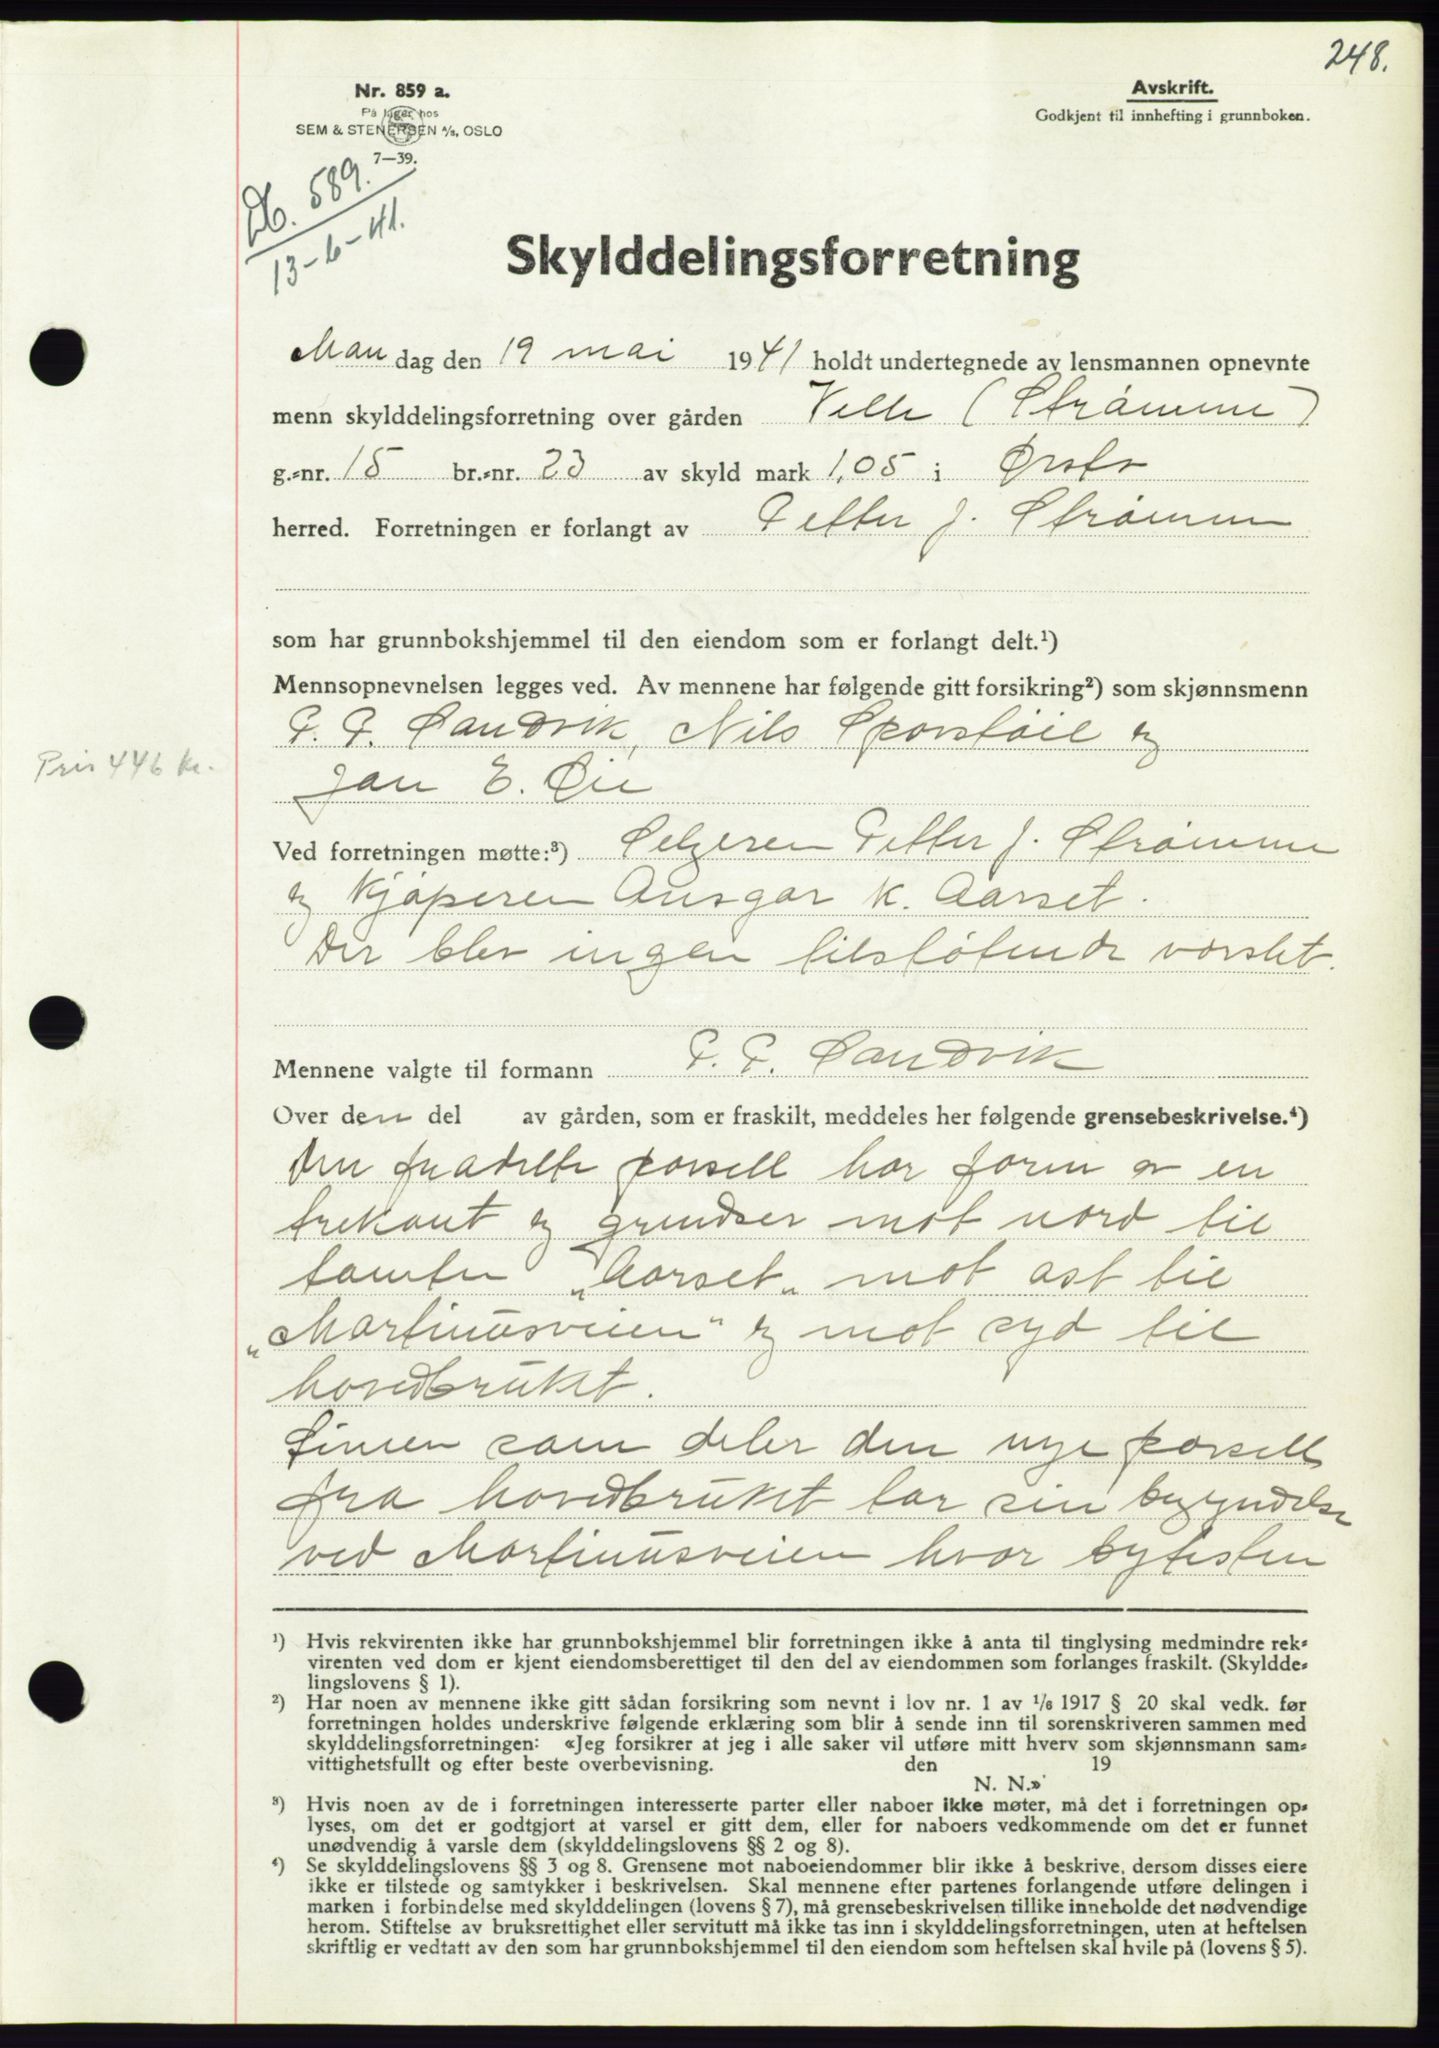 248.
Nr. 859 a.
På lager hos
SEM & STENERSEN A/S, OSLO
7—39.
Avskrift.
Godkjent til innhefting i grunnboken.
Db. 589.
13-6-41.
Skylddelingsforretning
Man dag den 19 mai 1941 holdt undertegnede av lensmannen opnevnte
menn skylddelingsforretning over gården Velle (Strømme)
g.=nr. 15 br.=nr. 23 av skyld mark 1,05 i Ørsta
herred. Forretningen er forlangt av Petter J. Strømme
som har grunnbokshjemmel til den eiendom som er forlangt delt.¹)
Mennsopnevnelsen legges ved. Av mennene har følgende gitt forsikring²) som skjønnsmenn
P. P. Sandvik, Nils Sporstøil og
Pris 446 kr.
Jan E. Øie
Ved forretningen møtte:³) Selgeren Petter J. Strømme
og kjøperen Ansgar K. Aarset.
Der blev ingen tilstøtende varslet.
Mennene valgte til formann P. P. Sandvik
Over den del av gården, som er fraskilt, meddeles her følgende grensebeskrivelse.⁴)
Den fradelte parsell har form av en
trekant og grundser mot nord til
tomten „Aarset„ mot øst til
„Martinusveien" og mot syd til
hovedbruket.
Linien som deler den nye parsell
fra hovedbruket tar sin begyndelse
ved Martinusveien hvor bytesten
¹) Hvis rekvirenten ikke har grunnbokshjemmel blir forretningen ikke å anta til tinglysing medmindre rek=
virenten ved dom er kjent eiendomsberettiget til den del av eiendommen som forlanges fraskilt. (Skyldde=
lingslovens § 1).
²) Har noen av mennene ikke gitt sådan forsikring som nevnt i lov nr. 1 av 1/6 1917 § 20 skal vedk. før
forretningen holdes underskrive følgende erklæring som blir å sende inn til sorenskriveren sammen med
skylddelingsforretningen: «Jeg forsikrer at jeg i alle saker vil utføre mitt hverv som skjønnsmann sam=
vittighetsfullt og efter beste overbevisning. den 19
N. N.»
³) Hvis noen av de i forretningen interesserte parter eller naboer ikke møter, må det i forretningen op=
lyses, om det er godtgjort at varsel er gitt dem, eller for naboers vedkommende om det er funnet
unødvendig å varsle dem (skylddelingslovens §§ 2 og 8).
⁴) Se skylddelingslovens §§ 3 og 8. Grensene mot naboeiendommer blir ikke å beskrive, dersom disses eiere
ikke er tilstede og samtykker i beskrivelsen. Skal mennene efter partenes forlangende utføre delingen i
marken i forbindelse med skylddelingen (lovens § 7), må grensebeskrivelsen tillike inneholde det nødvendige
herom. Stiftelse av bruksrettighet eller servitutt må ikke tas inn i skylddelingsforretningen, uten at heftelsen
skriftlig er vedtatt av den som har grunnbokshjemmel til den eiendom som heftelsen skal hvile på (lovens § 5).